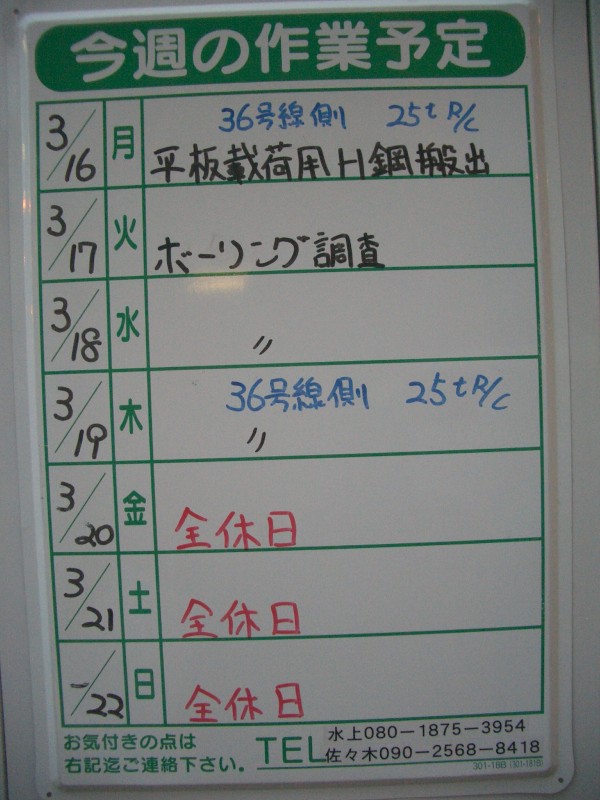 今週の作業予定
3/16 月 36号線側 25t R/C
平板載荷用H鋼搬出
3/17 火 ボーリング調査
3/18 水 〃
3/19 木 36号線側 25t R/C
〃
3/20 金 全休日
3/21 土 全休日
-/22 日 全休日
お気付きの点は
右記迄ご連絡下さい。
TEL
水上080-1875-3954
佐々木090-2568-8418
301-18B (301-181B)